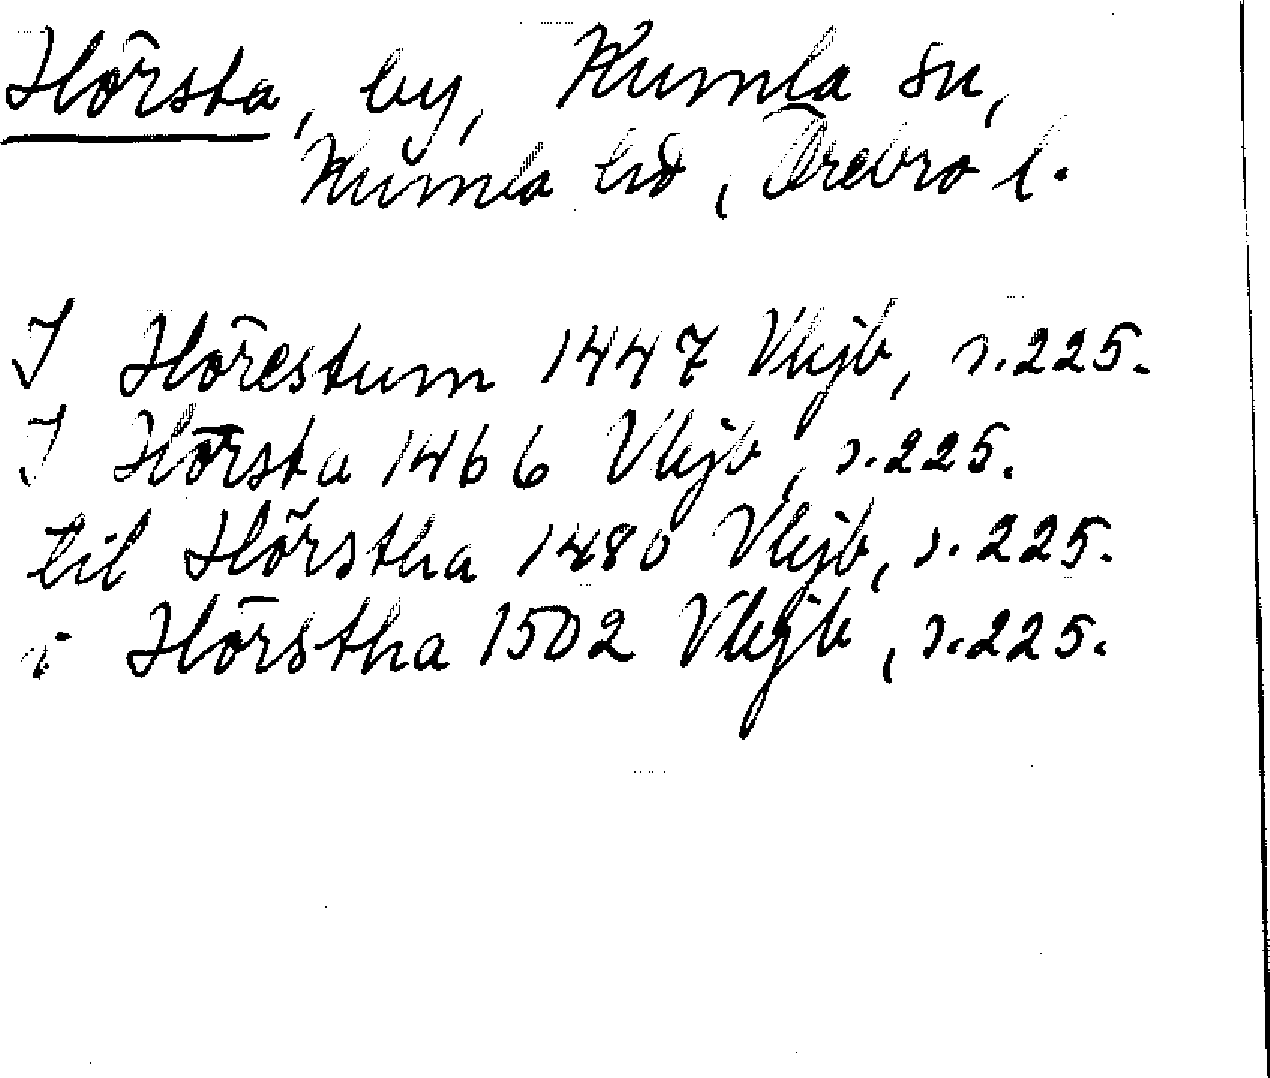 Hörsta, by, Kumla sn,
Kumla hd, Örebro l.
I Hörestum 1447 Vkjb, s.225.
I Hörsta 1466 Vkjb, s.225.
til Hörstha 1480 Vkjb, s.225.
i Hörstha 1502 Vkjb, s.225.